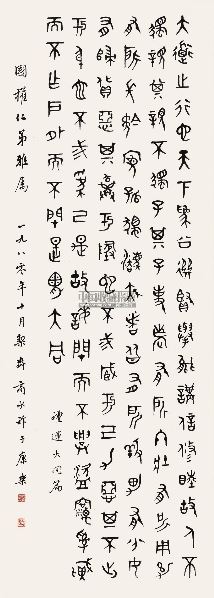 大道之行也天下為公選賢與能講信修睦故人不
獨親其親不獨子其子使老有所終壯有所用幼
有所長矜寡孤獨廢疾者皆有所養男有分女
有歸貨惡其棄於地也不必藏於己力惡其不出
於身也不必為己是故謀閉而不興盜竊亂賊
而不作戶外而不閉是謂大同
禮運大同篇
國權仁弟雅屬
一九八〇年十月契齋商承祚于康樂